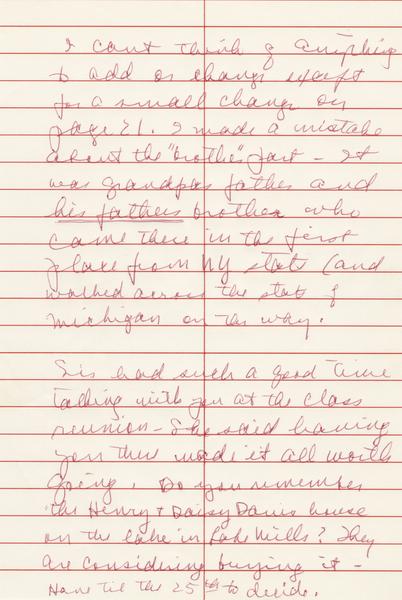 I can't think of anything
to add or change except
for a small change on
page 21. I made a mistake
about the "brother" part - It
was grandpas father and
his fathers brother who
came there in the first
place from NY state (and
walked across the state of
Michigan on the way.
Sis had such a good time
talking with you at the class
reunion - She said having
you there made it all worth
going. Do you remember
the Henry & Daisy Davis house
on the lake in Lake Mills? They
are considering buying it -
Have til the 25th to decide.